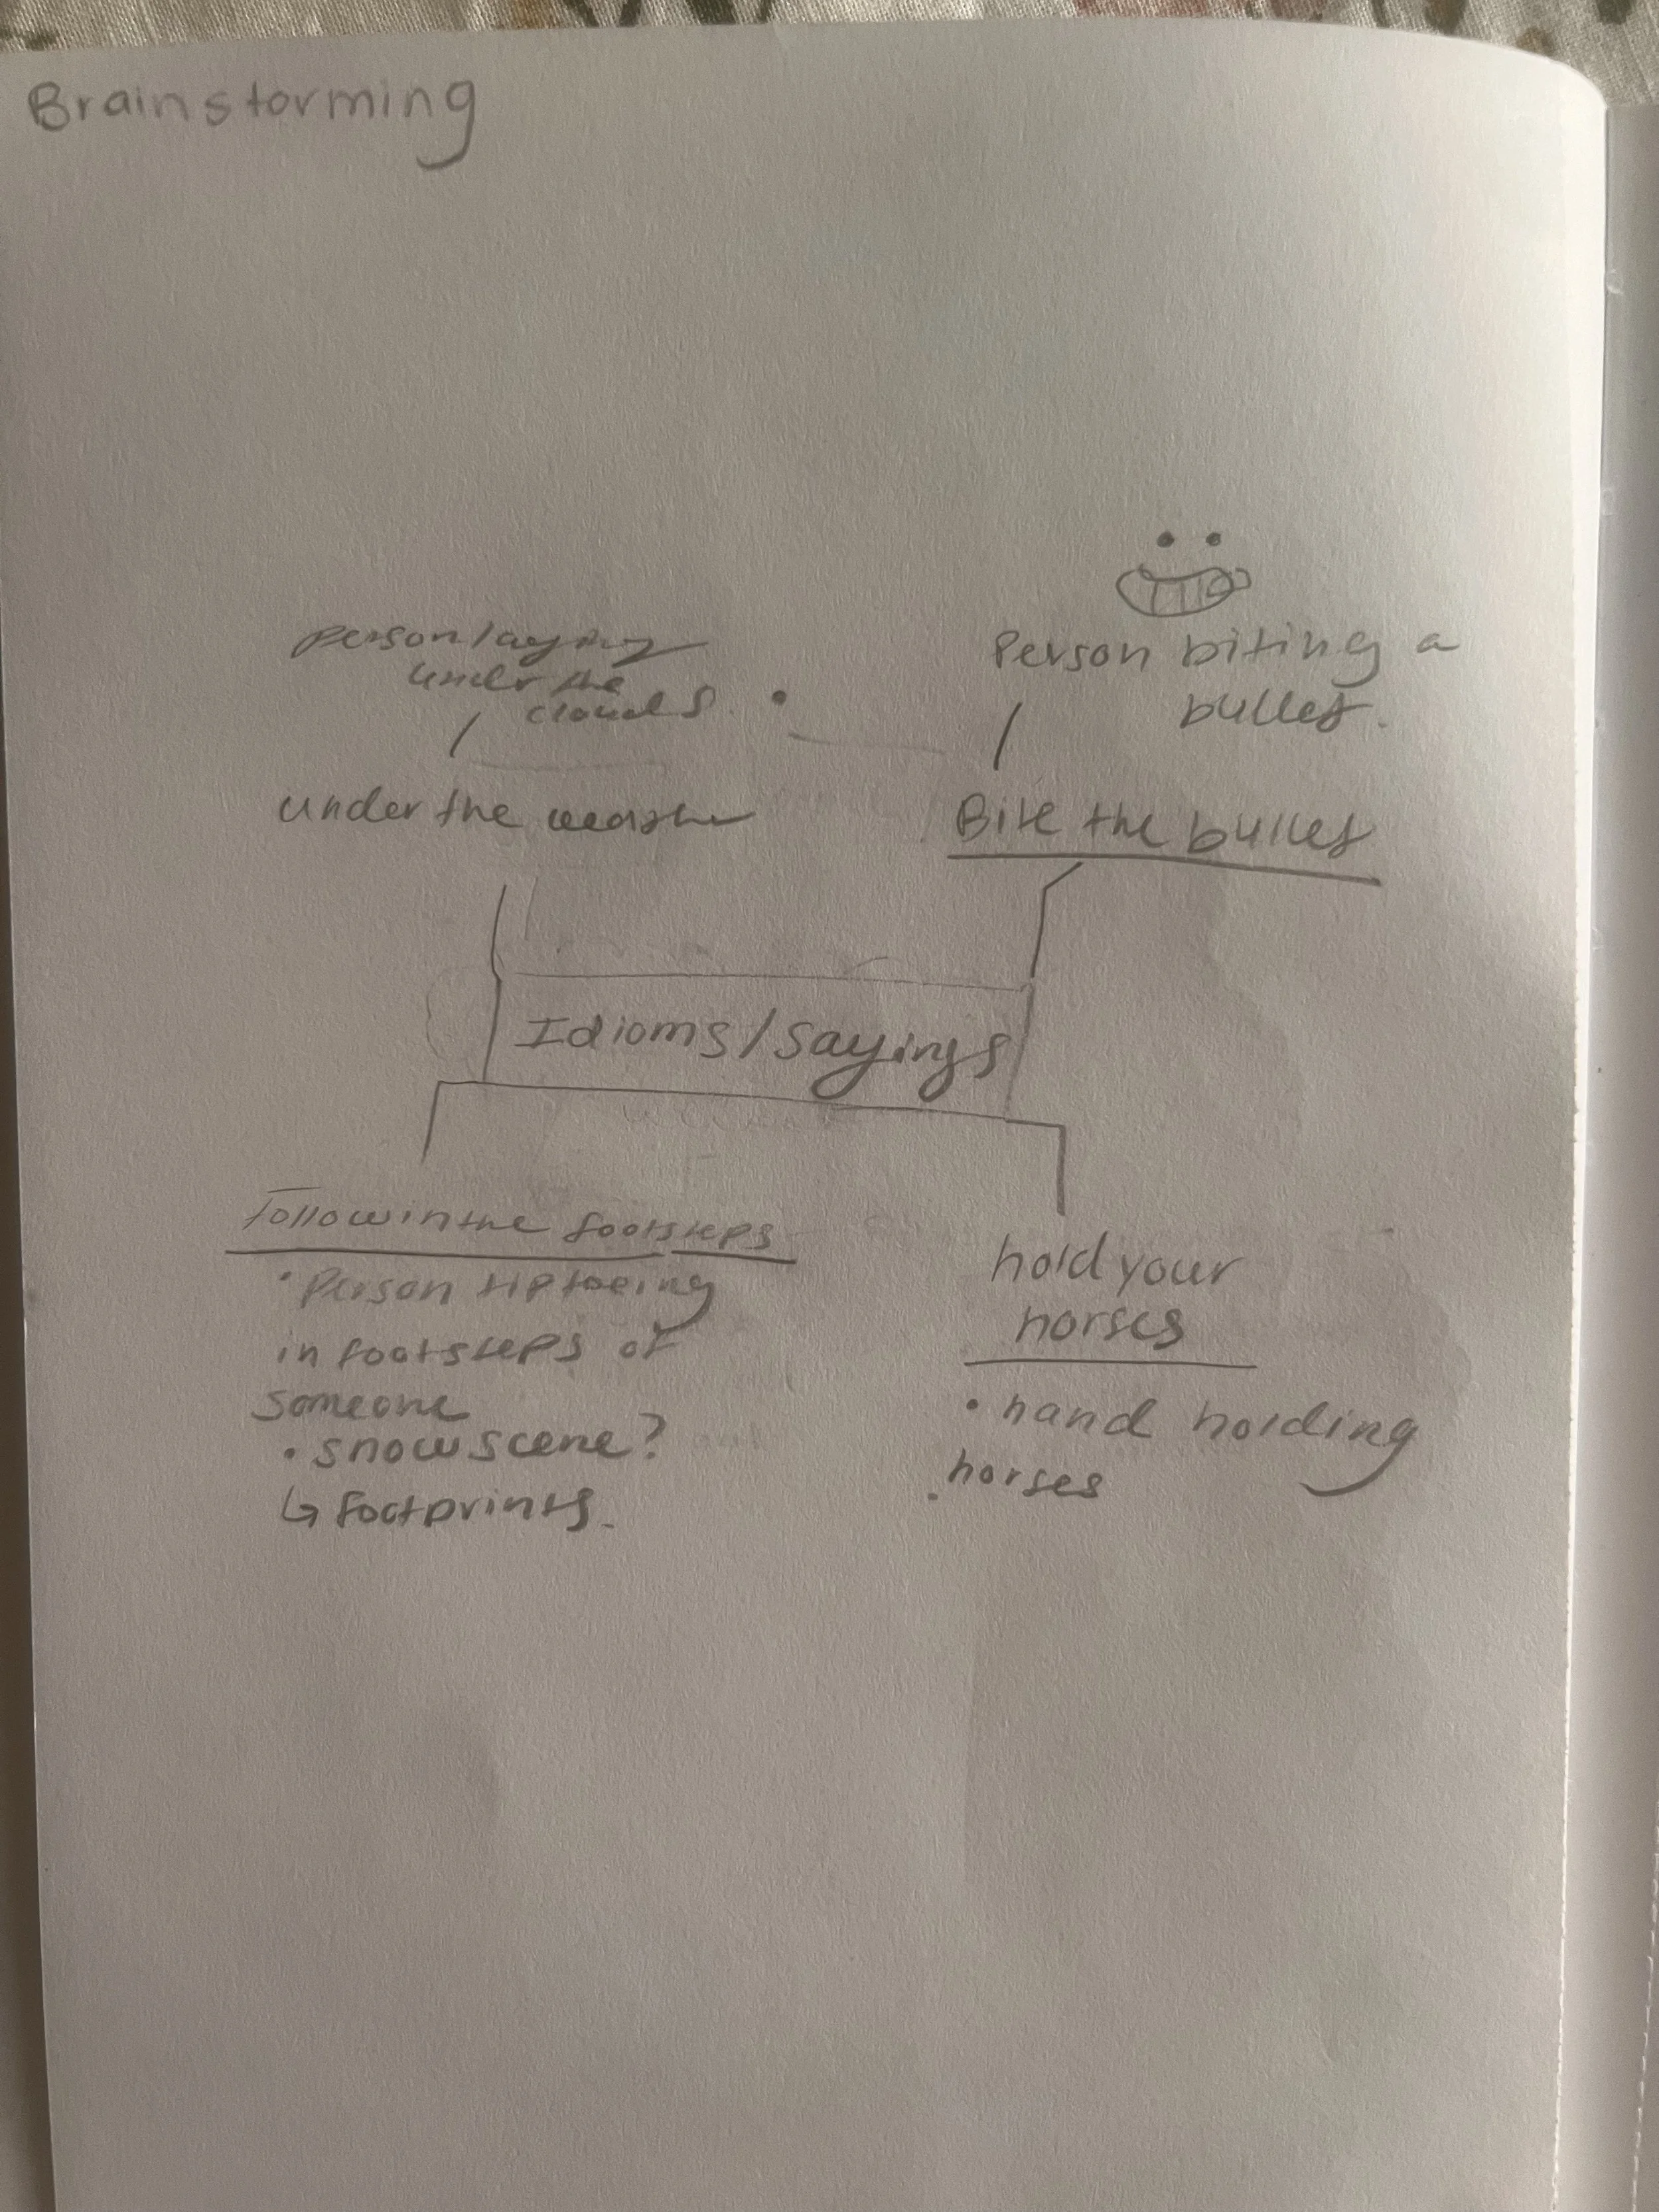 Brainstorming
person laying
under the
clouds.
under the weather
Person biting a
bullet.
Bite the bullet
Idioms/sayings
Follow in the footsteps
• Person tiptoeing
in footsteps of
someone
• snow scene?
↳ footprints.
hold your
horses
• hand holding
horses